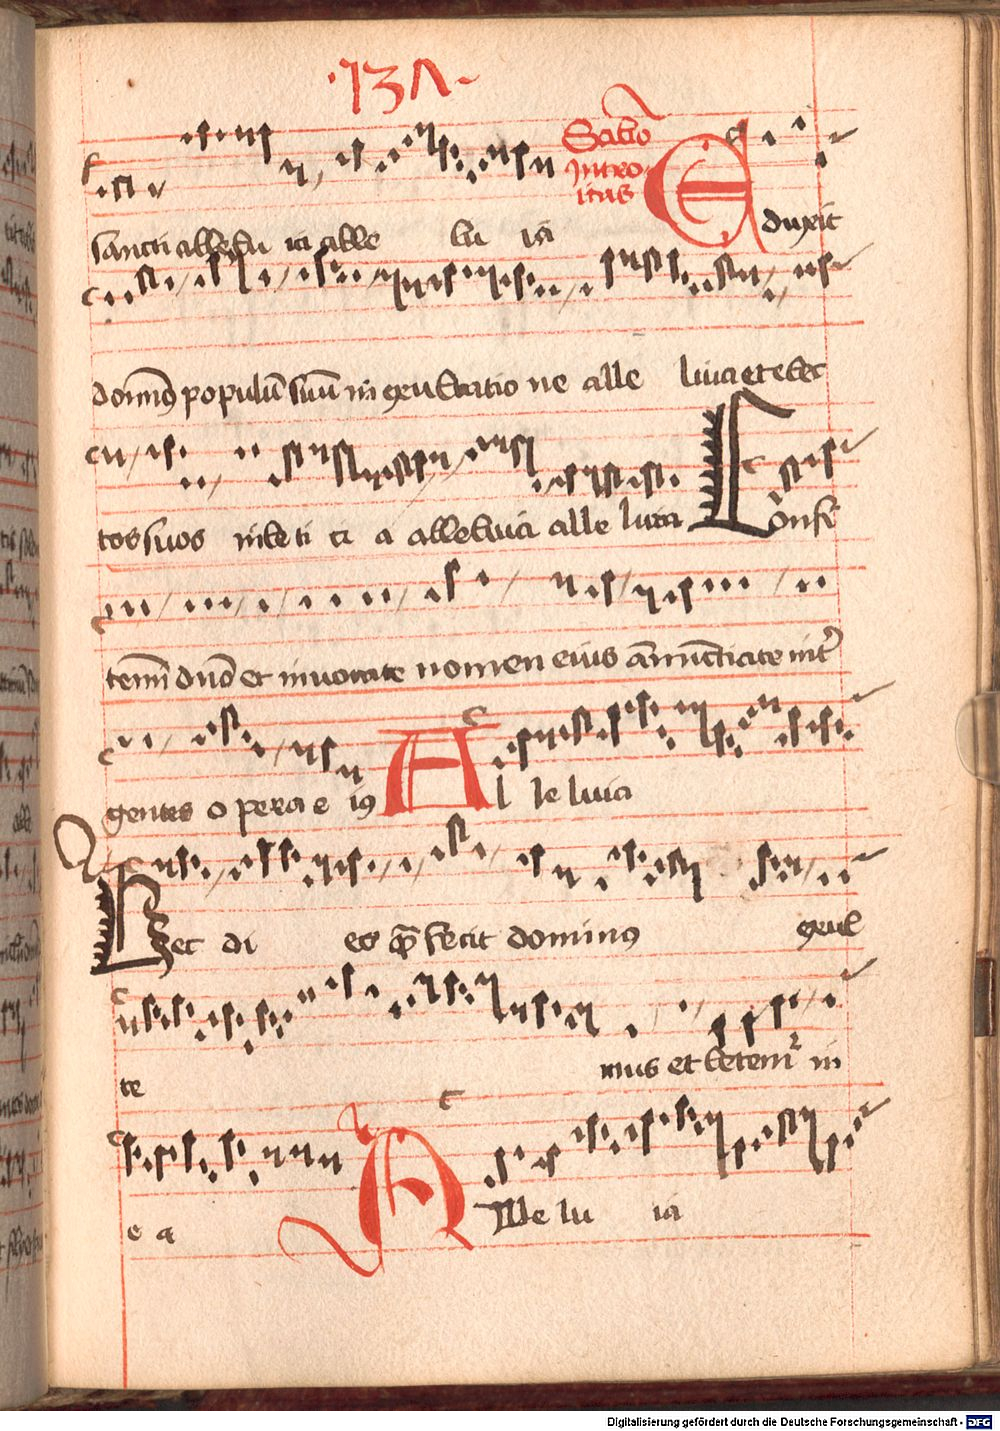 ·137·
Sabbo
Introitus
sancti allelu ia alle lu ia Eduxit
domin9 populū suū in exultatio ne alle luia et elec
tos suos in leti ci a alleluia alle luia Confi
temī dn̄o et inuocate nomen eius ānūctiate int̄
gentes o pera e i9 Al le luia
Hec di es quā fecit domin9 exul
te mus et letem̄ in
e a Alle lu ia
Digitalisierung gefördert durch die Deutsche Forschungsgemeinschaft - DFG